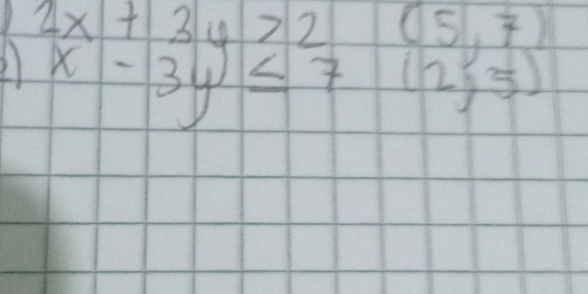 ) 2x + 3y > 2 (5, 7)
2) x - 3y ≤ 7 (2; 5)